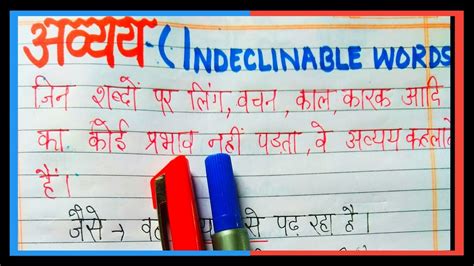 अव्यय - (INDECLINABLE WORDS
जिन शब्दों पर लिंग, वचन, काल, कारक आदि
का कोई प्रभाव नहीं पड़ता, वे अव्यय कहलाते
हैं।
जैसे → से पढ़ रहा है।